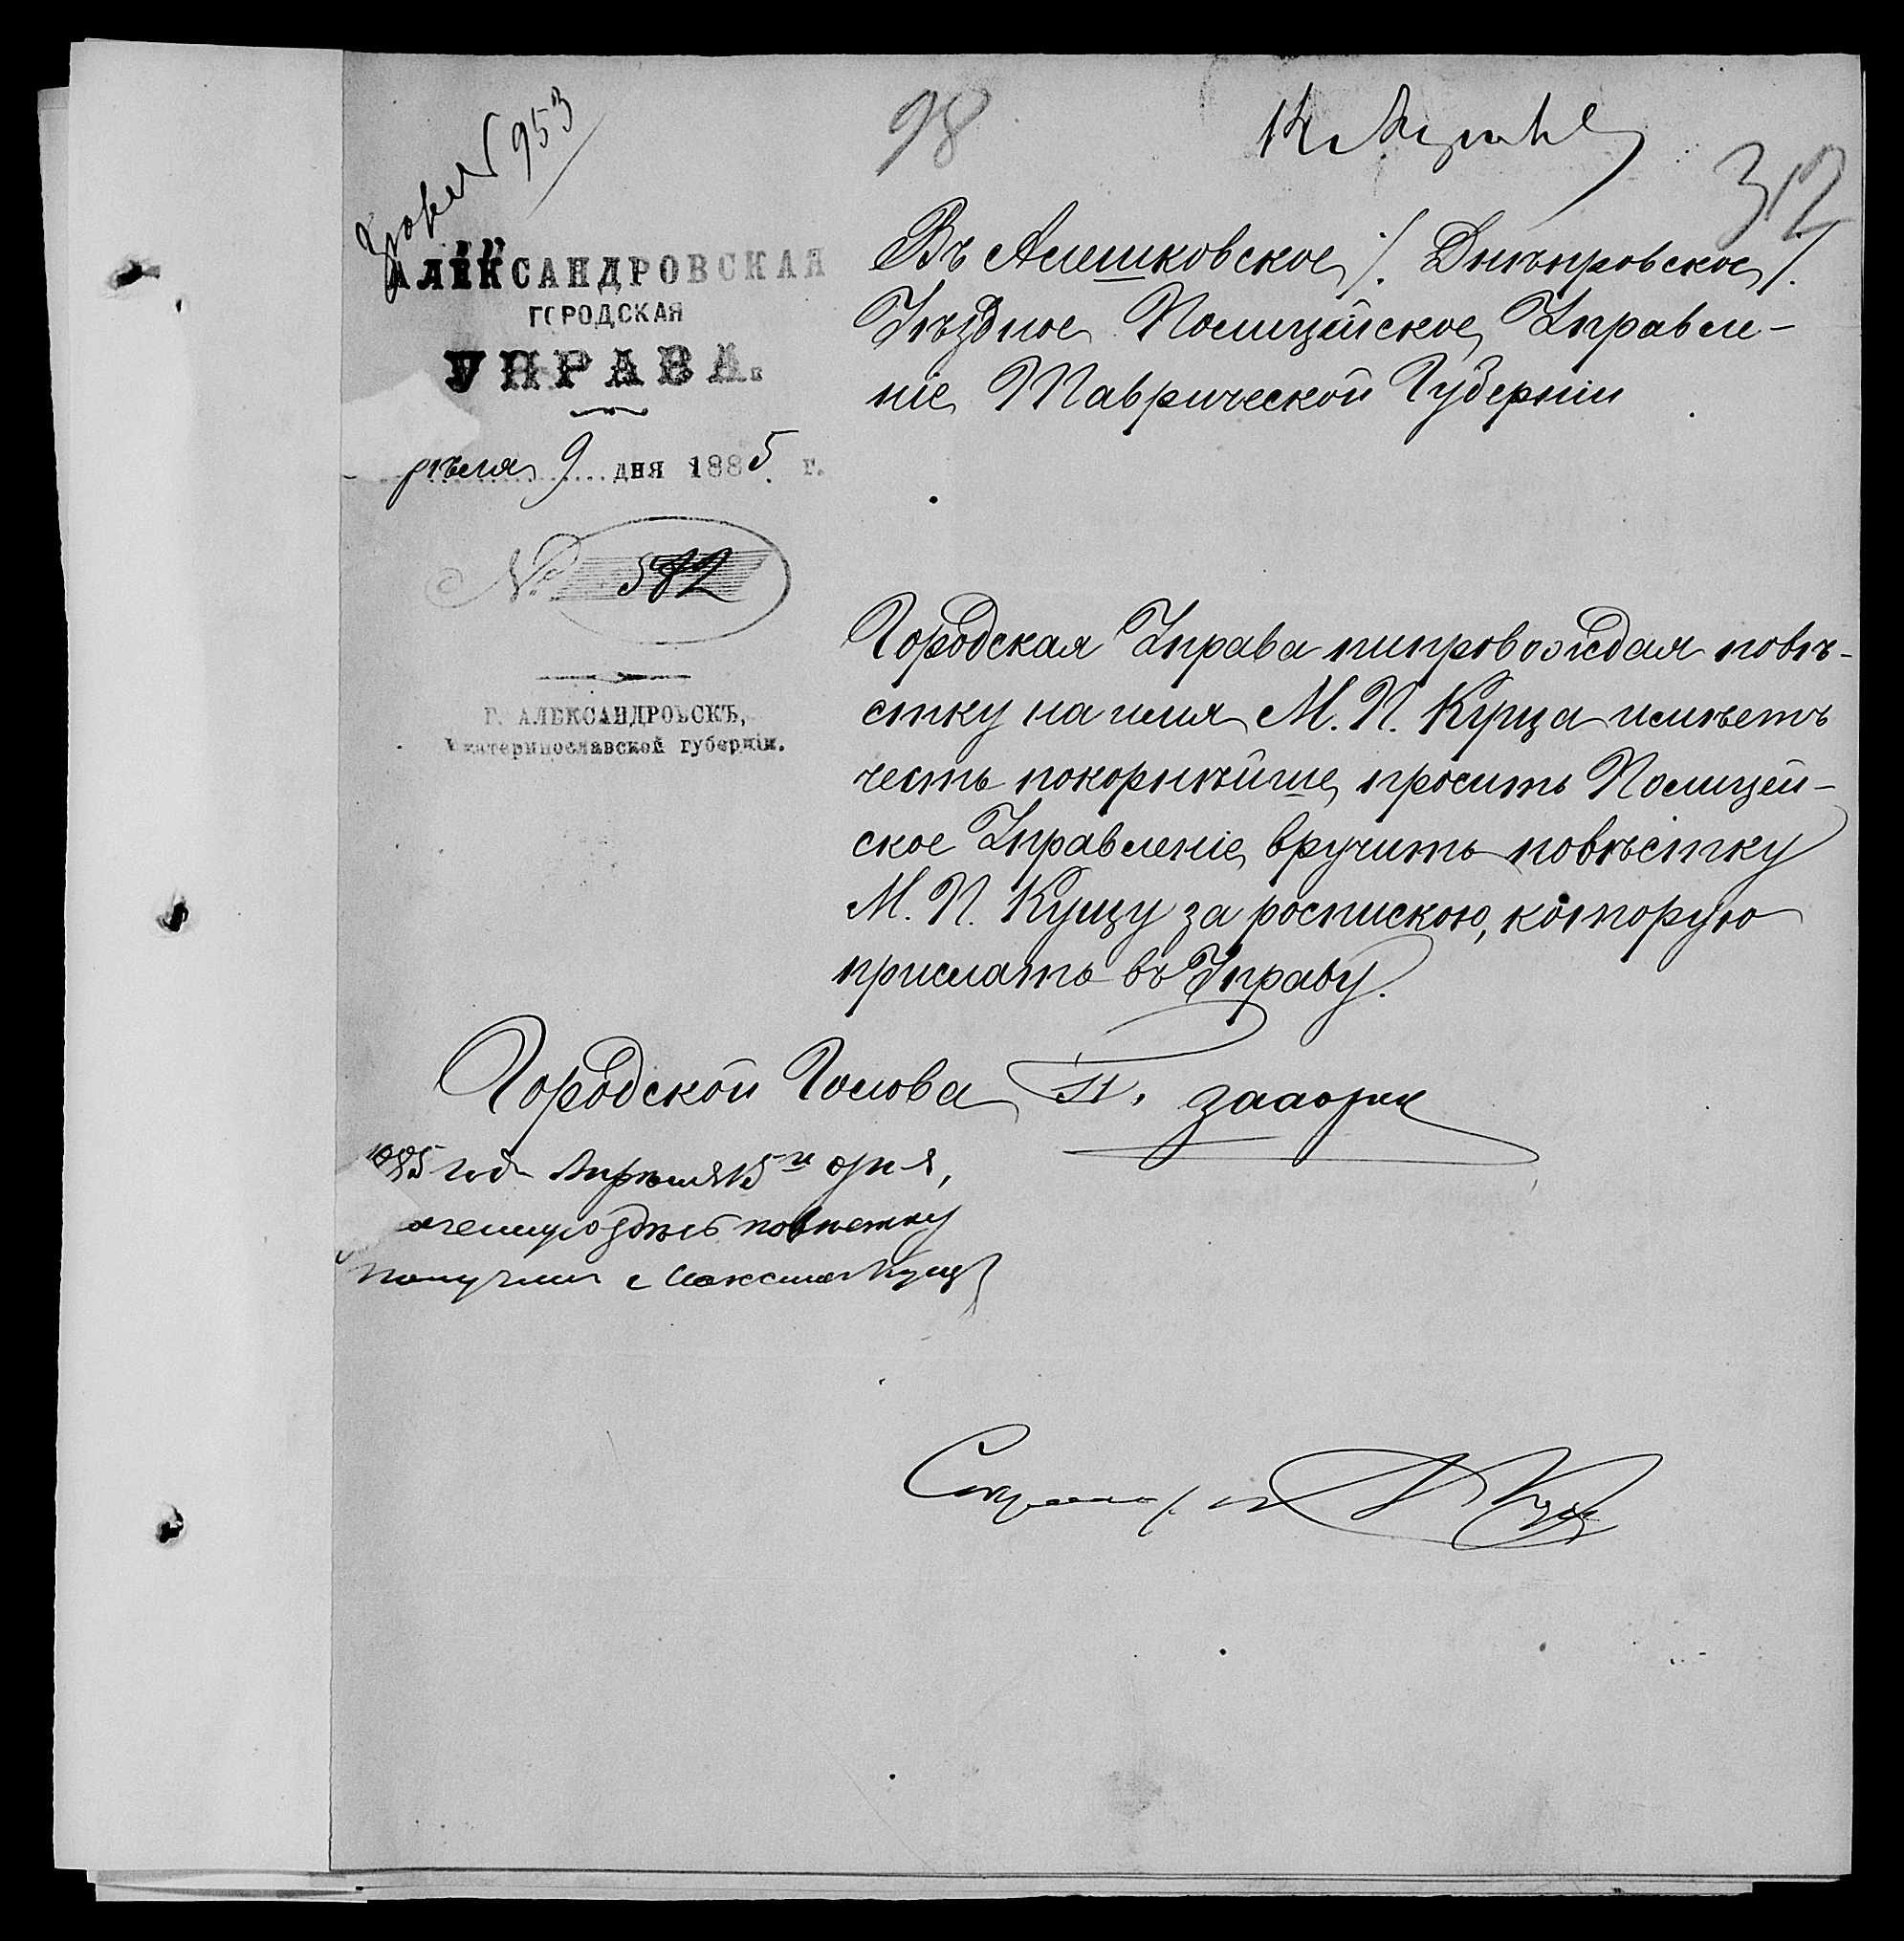 № 953
98
312
АЛЕКСАНДРОВСКАЯ
ГОРОДСКАЯ
УПРАВА.
рѣля 9 дня 1885 г.
№ 582
Г. АЛЕКСАНДРОВСКЪ,
Екатеринославской губерніи.
Въ Алешковское /. Днѣпровское /.
Уѣздное Полицейское Управле-
ніе Таврической Губерніи
Городская Управа припровождая повѣ-
стку на имя М. П. Куща имѣетъ
честь покорнѣйше просить Полицей-
ское Управленіе вручить повѣстку
М. П. Кущу за роспискою, которую
прислать въ Управу.
Городской Голова
1885 года Апрѣля 15 дня,
повѣстку
получилъ Максимъ Кущъ
Секретарь